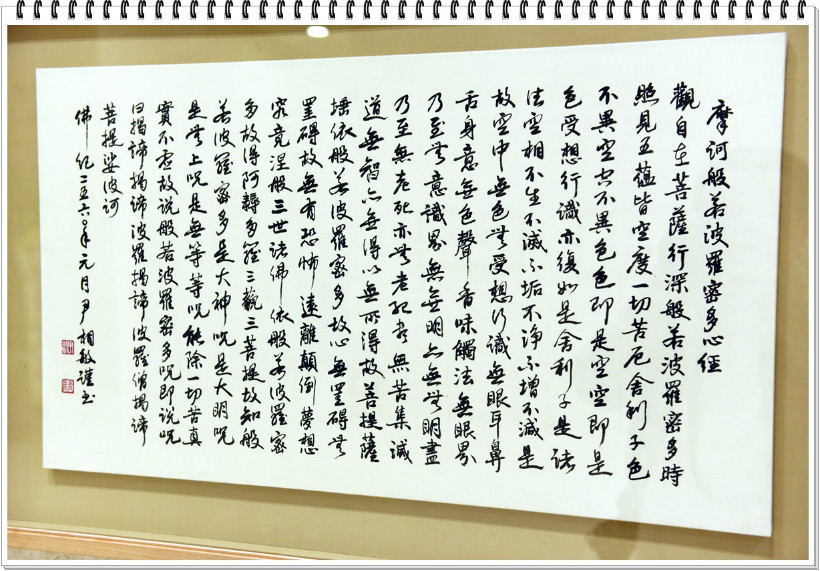 摩訶般若波羅密多心經
觀自在菩薩行深般若波羅密多時
照見五蘊皆空度一切苦厄舍利子色
不異空空不異色色即是空空即是
色受想行識亦復如是舍利子是諸
法空相不生不滅不垢不淨不增不減是
故空中無色無受想行識無眼耳鼻
舌身意無色聲香味觸法無眼界
乃至無意識界無無明亦無無明盡
乃至無老死亦無老死盡無苦集滅
道無智亦無得以無所得故菩提薩
埵依般若波羅密多故心無罣碍無
罣碍故無有恐怖遠離顛倒夢想
究竟涅般三世諸佛依般若波羅密
多故得阿耨多羅三藐三菩提故知般
若波羅密多是大神呪是大明呪
是無上呪是無等等呪能除一切苦真
實不虛故說般若波羅密多呪即說呪
曰揭諦揭諦波羅揭諦波羅僧揭諦
菩提娑婆訶
佛紀二五六〇年元月尹相敏謹書